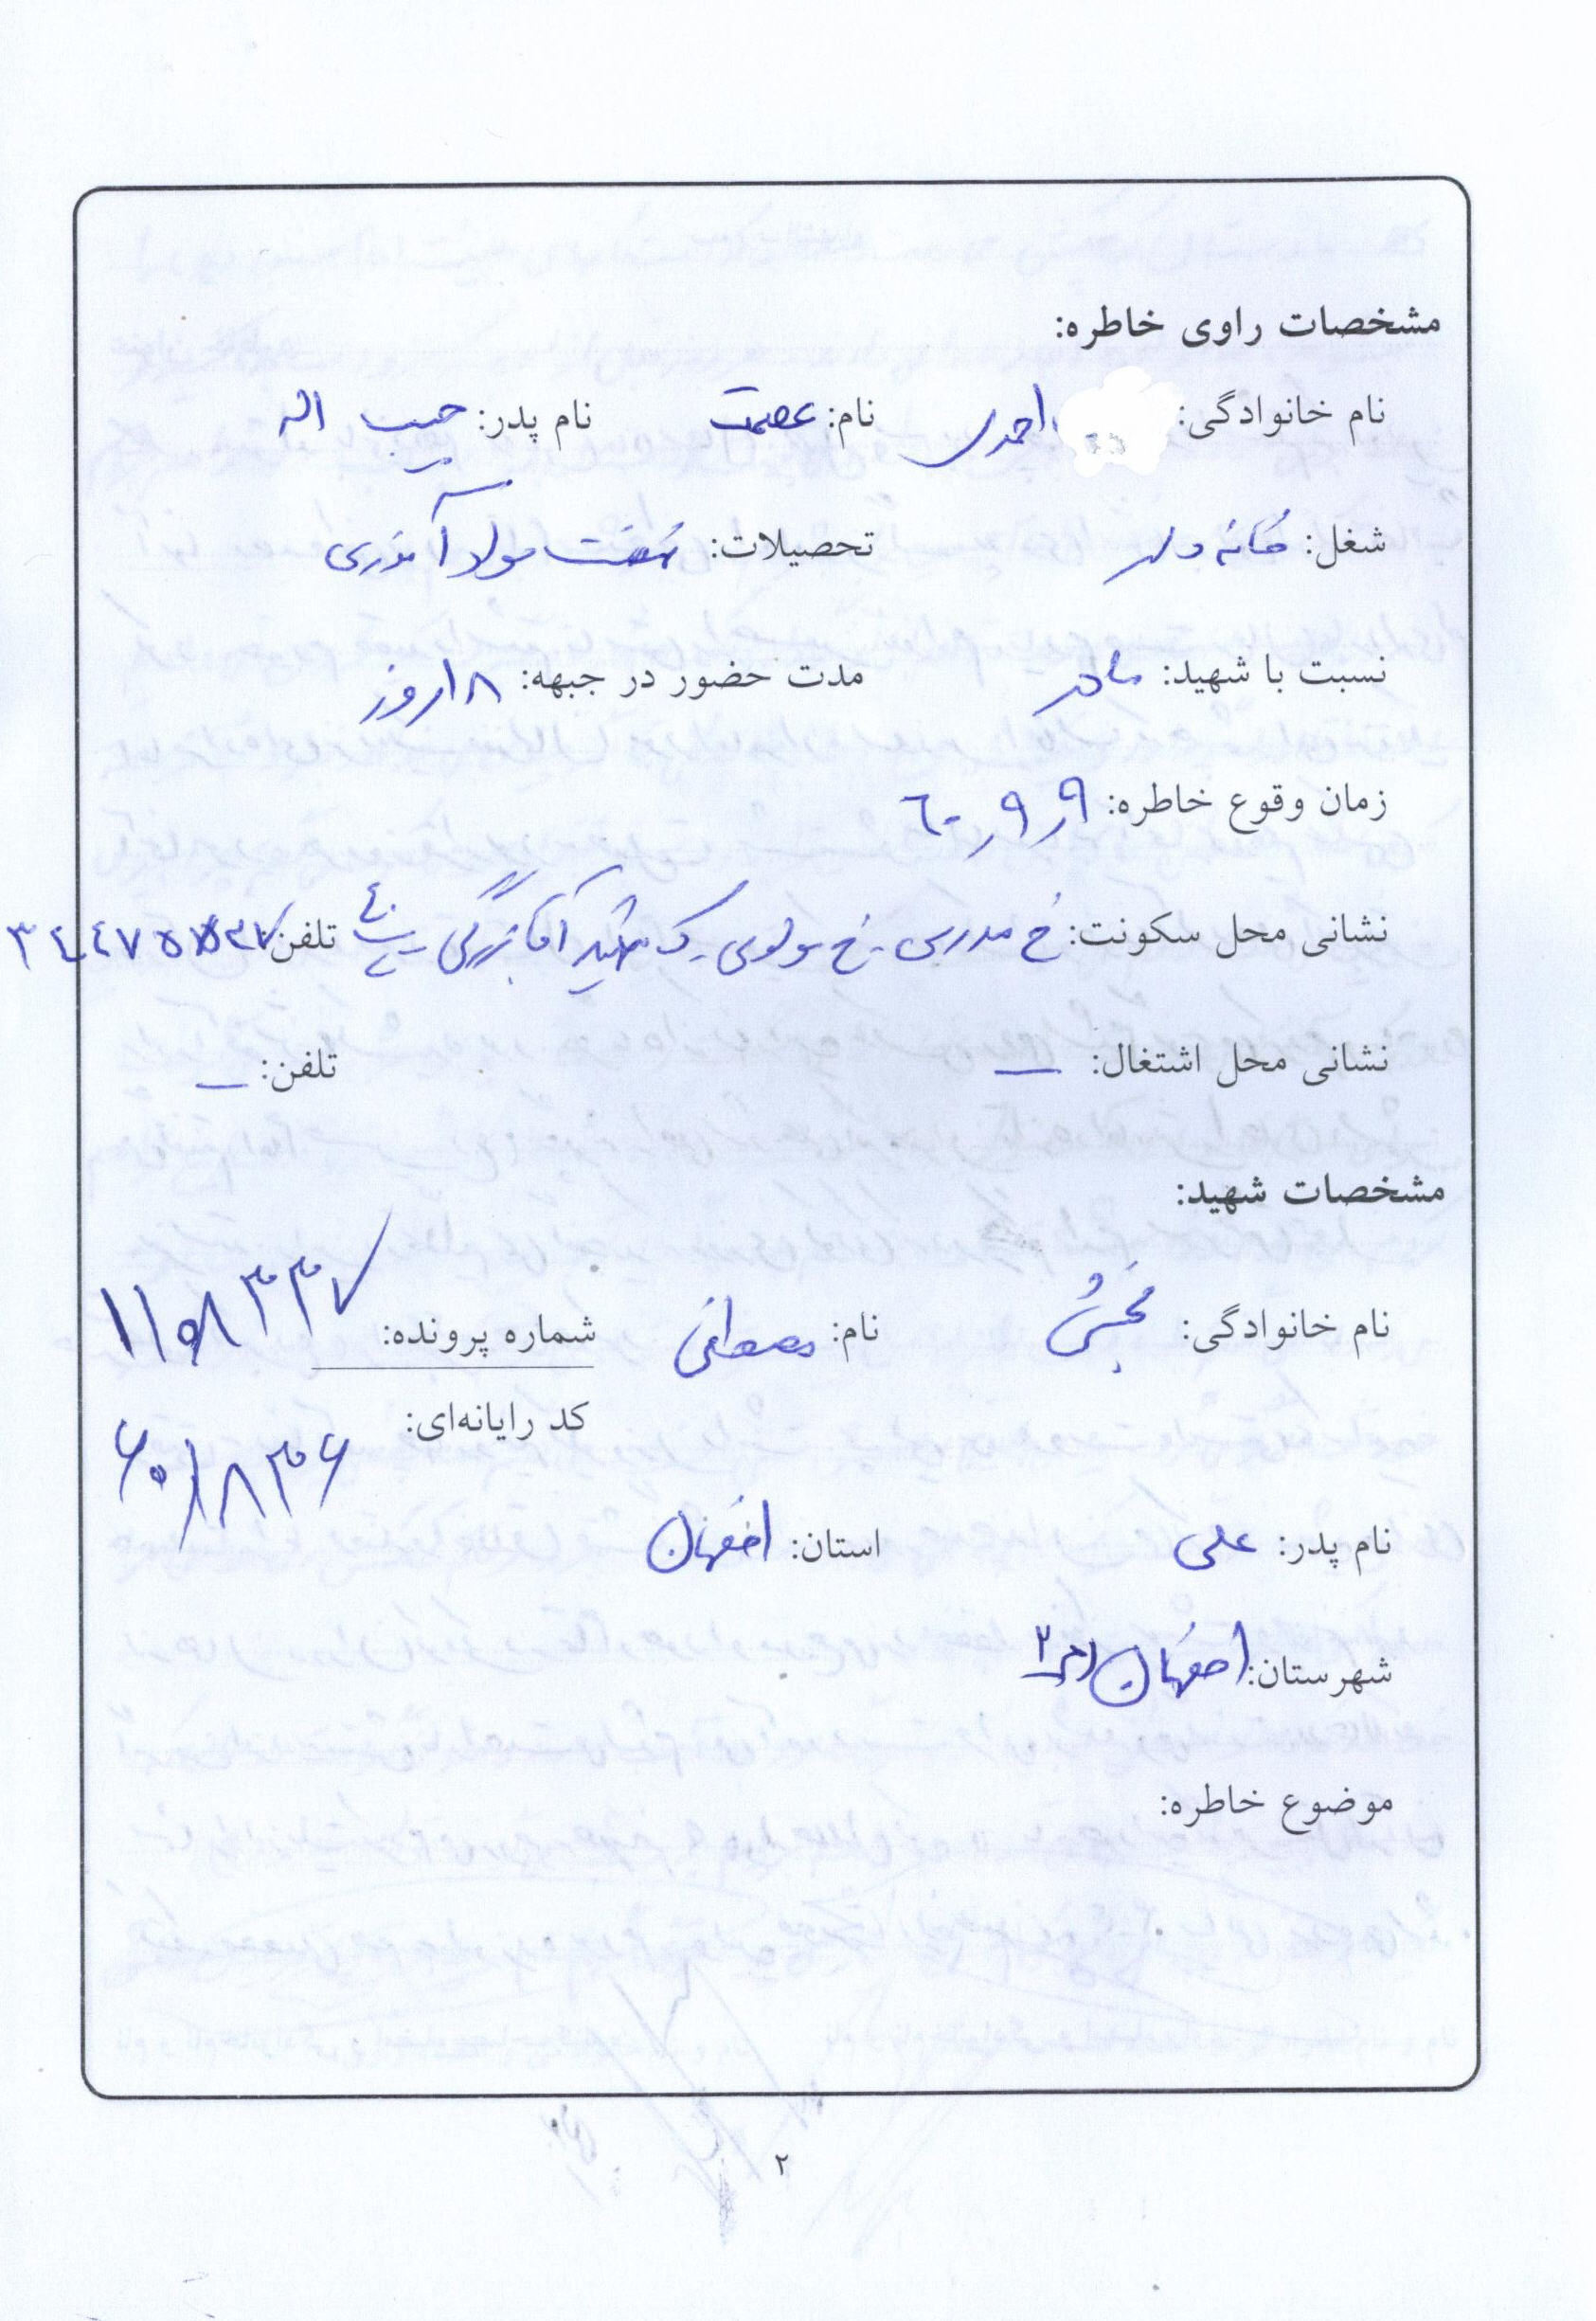 مشخصات راوی خاطره:
نام خانوادگی: احمدی نام: عصمت نام پدر: حبیب اله
شغل: خانه دار تحصیلات: نهضت سواد آموزی
نسبت با شهید: مادر مدت حضور در جبهه: ۱۸ روز
زمان وقوع خاطره: ۹ر۹ر۶۰
نشانی محل سکونت: خ مدرس - خ مولوی ک شهید آقابزرگی پ ۴۰ تلفن:
نشانی محل اشتغال: ـ تلفن: ـ
مشخصات شهید:
نام خانوادگی: بخشی نام: مصطفی شماره پرونده: ۱۱۵۸۳۳۷
کد رایانه‌ای: ۶۰۱۸۳۶
نام پدر: علی استان: اصفهان
شهرستان: اصفهان
موضوع خاطره:
۲